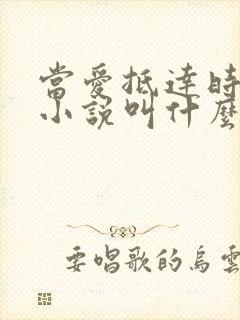 當愛抵達時
小說叫什麼
要唱歌的烏雲